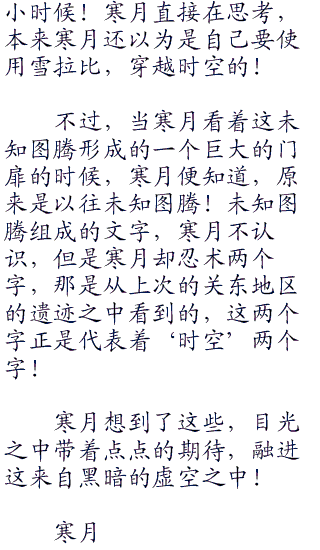 小时候！寒月直接在思考，
本来寒月还以为是自己要使
用雪拉比，穿越时空的！
不过，当寒月看着这未
知图腾形成的一个巨大的门
扉的时候，寒月便知道，原
来是以往未知图腾！未知图
腾组成的文字，寒月不认
识，但是寒月却忍术两个
字，那是从上次的关东地区
的遗迹之中看到的，这两个
字正是代表着‘时空’两个
字！
寒月想到了这些，目光
之中带着点点的期待，融进
这来自黑暗的虚空之中！
寒月